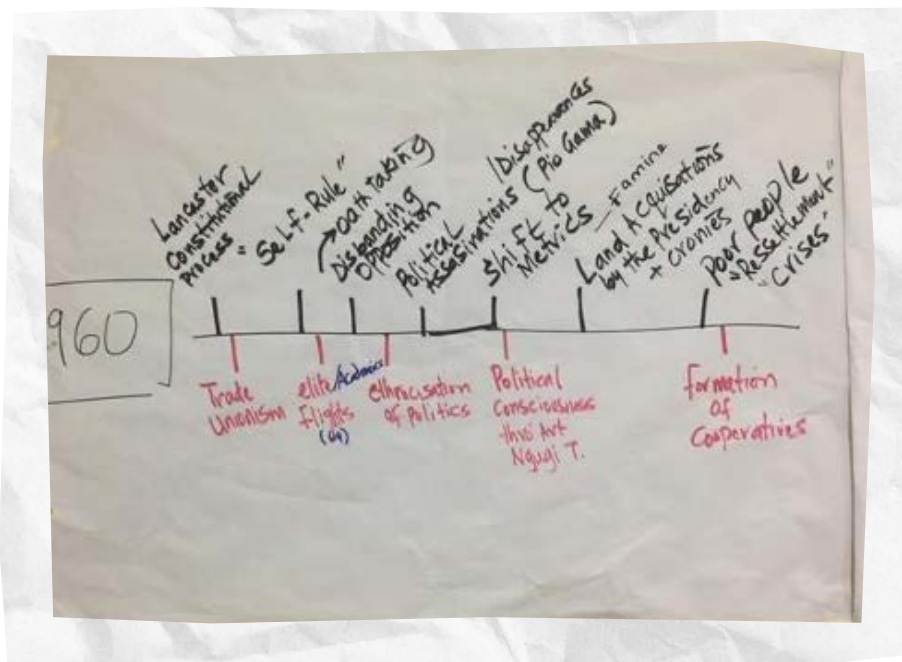 960
Lancaster
Constitutional
process =
Self-Rule"
oath taking
Disbanding
Opposition
Political
Assasinations
/Disappearances
(Pio Gama)
Shift to
Metrics
- Famine
Land Acquisations
by the Presidency
+ cronies
Poor people
"Ressettlement"
"crises"
Trade
Unionism
elite/Academics
flights
ethnicisation
of politics
Political
Consciousness
thro Art
Ngugi T.
formation
of
Cooperatives